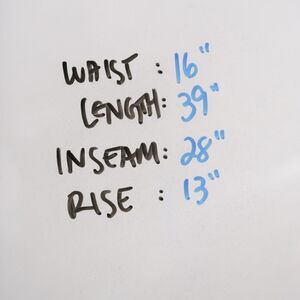 WAIST : 16"
LENGTH: 39"
INSEAM: 28"
RISE : 13"